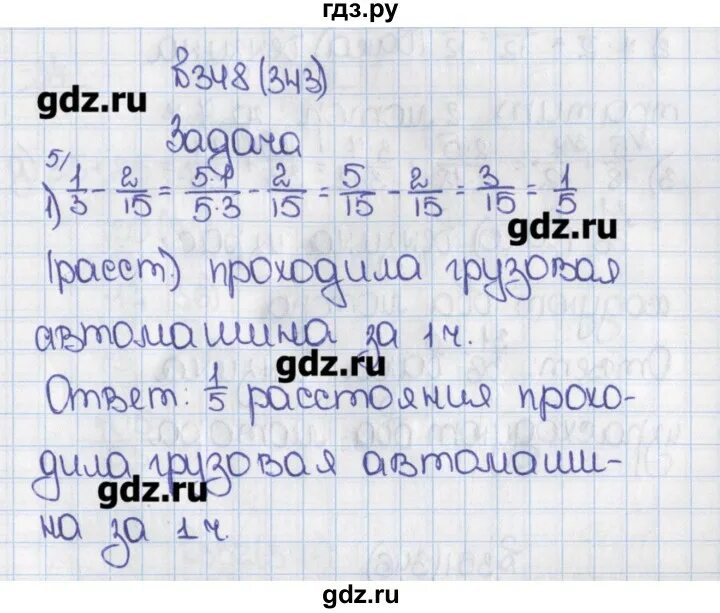 гдз.ру
В348 (343)
gdz.ru
Задача
5/
1) 1/3 - 2/15 = 5·1/5·3 - 2/15 = 5/15 - 2/15 = 3/15 = 1/5
gdz.ru
(расст.) проходила грузовая
автомашина за 1 ч.
gdz.ru
Ответ: 1/5 расстояния прохо-
дила грузовая автомаши-
gdz.ru
на за 1 ч.
gdz.ru